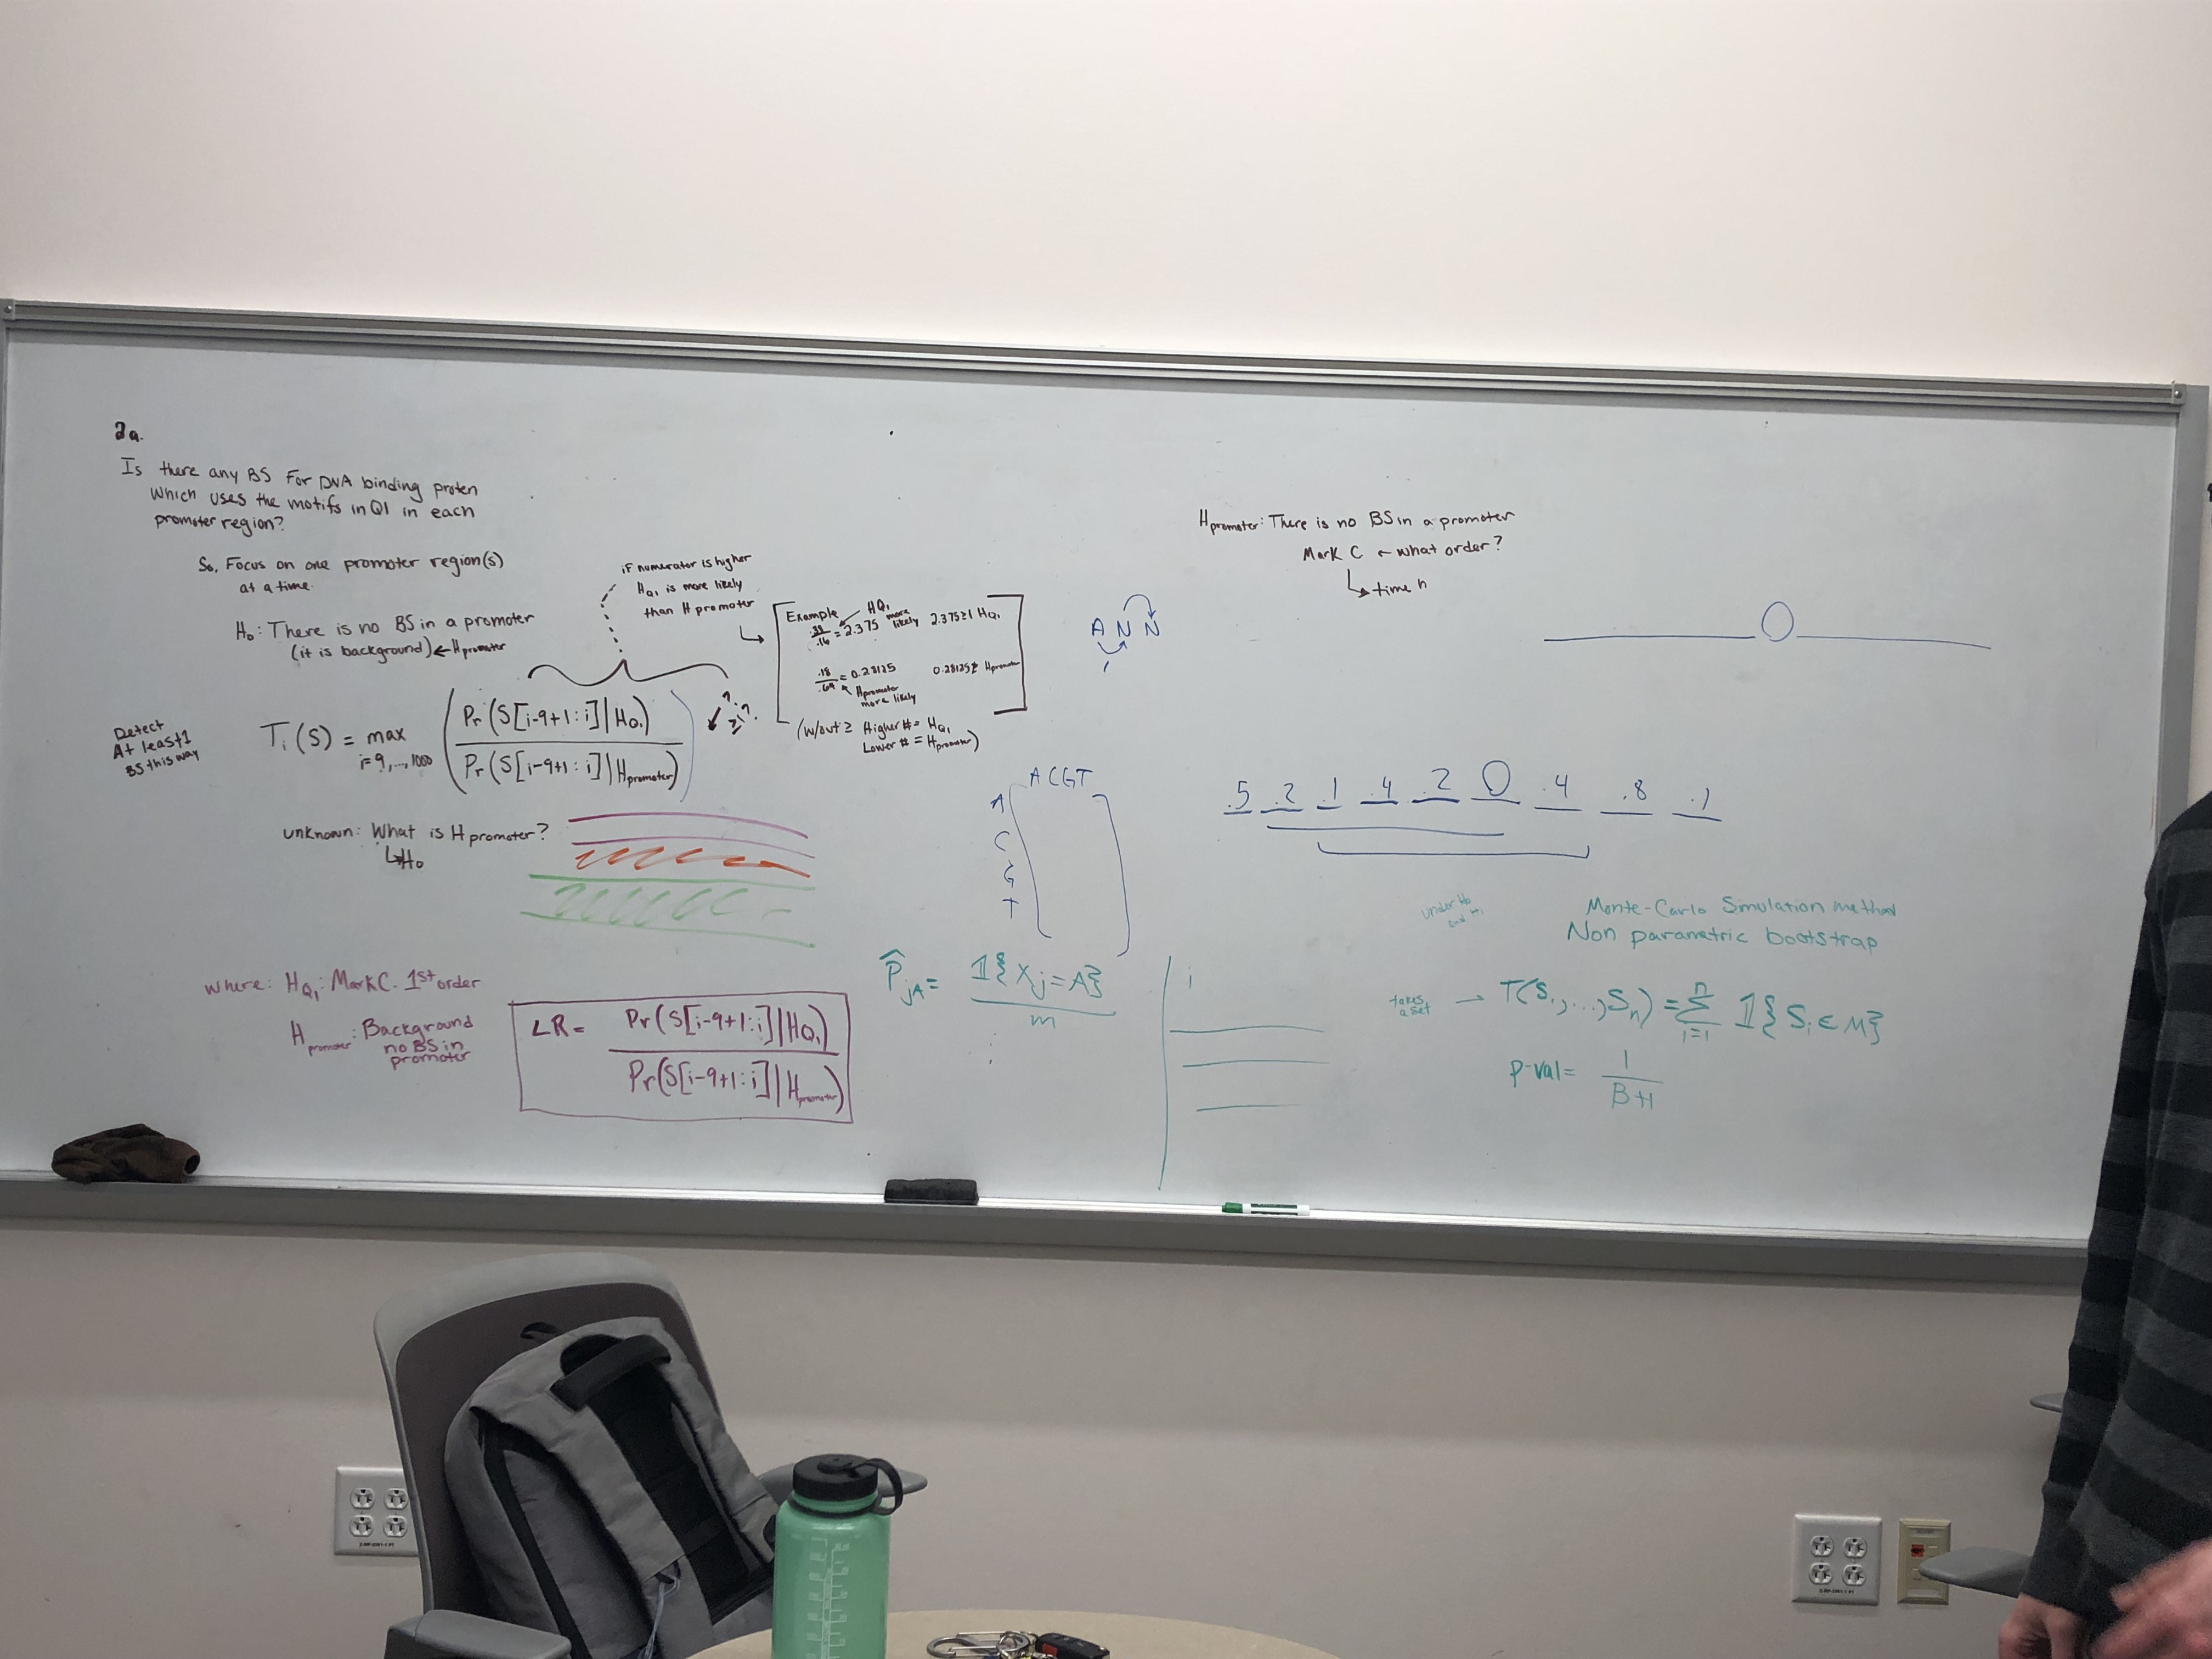 2a.
Is there any BS For DNA binding proten
which uses the motifs in Q1 in each
promoter region?
So, Focus on one promoter region(s)
at a time.
H₀: There is no BS in a promoter
(it is background) ← H promoter
if numerator is higher
HQ₁ is more likely
than H promoter
Detect
At least 1
BS this way
T₁(S) = max i=9,...,1000 ( Pr(S[i-9+1:i]|HQ₁) / Pr(S[i-9+1:i]|Hpromoter) )
Example
.38/.16 = 2.375 HQ₁ more likely 2.375≥1 HQ₁
.18/.64 = 0.28125 Hpromoter more likely 0.28125≱ Hpromoter
(w/out ≥ Higher # = HQ₁
Lower # = Hpromoter)
unknown: What is H promoter?
↳H₀
where: HQ₁: Mark C. 1st order
Hpromoter: Background
no BS in
promoter
LR = Pr(S[i-9+1:i]|HQ₁) / Pr(S[i-9+1:i]|Hpromoter)
A N N
A C G T
A
C
G
T
P̂jA = 𝟙{Xj=A} / m
i
Hpromoter: There is no BS in a promoter
Mark C ← what order?
↳ time h
.5 .2 .1 .4 .2 0 .4 .8 .1
under H₀
and H₁
Monte-Carlo Simulation method
Non parametric bootstrap
takes
a set
→ T(S₁,...,Sn) = Σ i=1 n 𝟙{Sᵢ ∈ M}
p-val = 1 / B+1